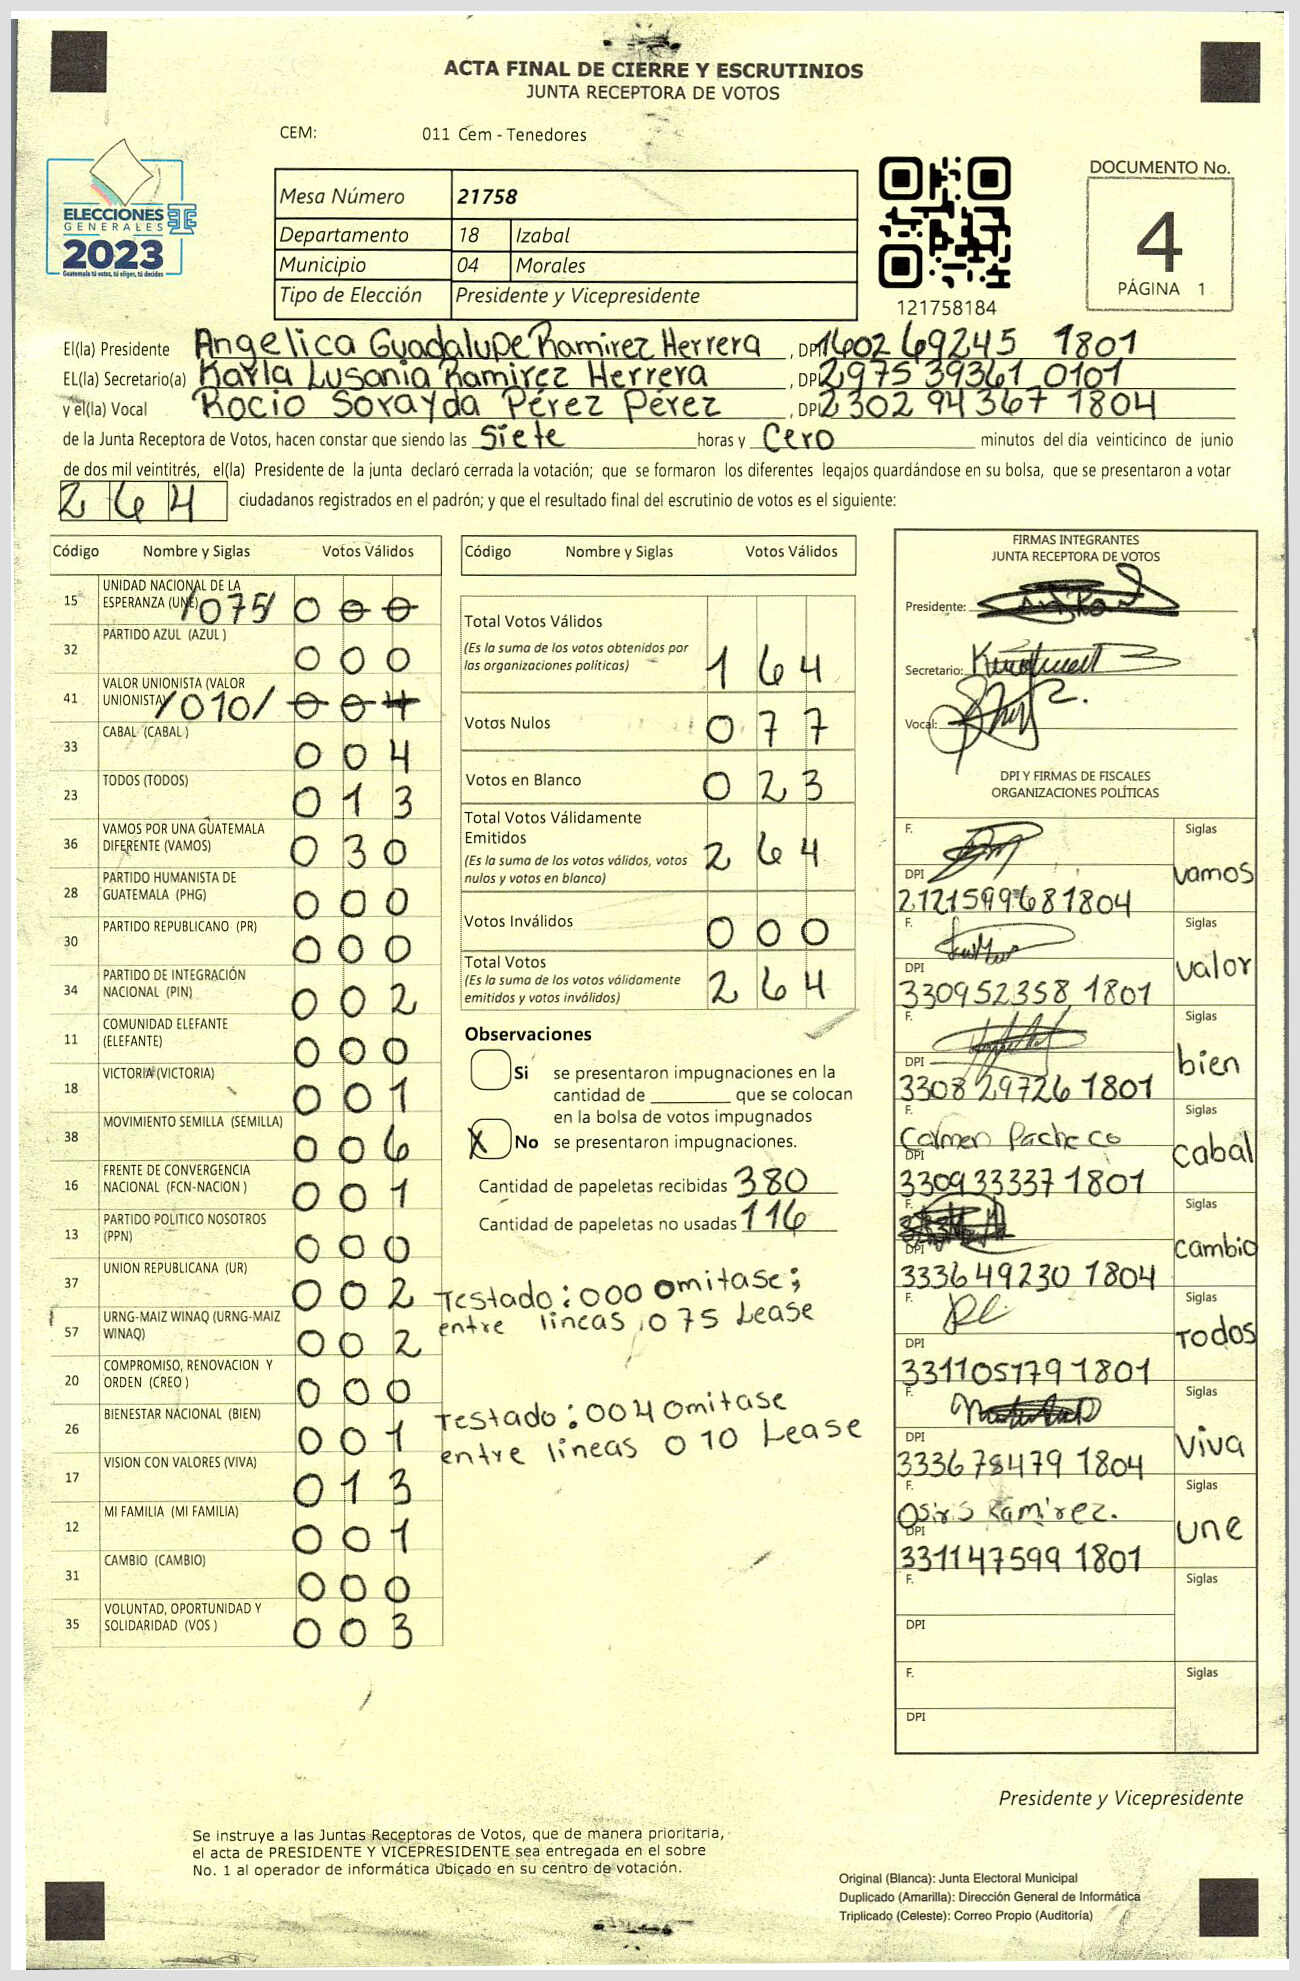 ACTA FINAL DE CIERRE Y ESCRUTINIOS
JUNTA RECEPTORA DE VOTOS
CEM: 011 Cem - Tenedores
ELECCIONES
GENERALES
2023
Guatemala tú votas, tú eliges, tú decides
Mesa Número 21758
Departamento 18 Izabal
Municipio 04 Morales
Tipo de Elección Presidente y Vicepresidente
121758184
DOCUMENTO No.
4
PÁGINA 1
El(la) Presidente Angelica Guadalupe Ramirez Herrera , DPI 1602 69245 1801
EL(la) Secretario(a) Karla Lusania Ramirez Herrera , DPI 2975 39361 0101
y el(la) Vocal Rocio Sorayda Pérez Pérez , DPI 2302 94367 1804
de la Junta Receptora de Votos, hacen constar que siendo las Siete horas y Cero minutos del día veinticinco de junio
de dos mil veintitrés, el(la) Presidente de la junta declaró cerrada la votación; que se formaron los diferentes legajos guardándose en su bolsa, que se presentaron a votar
264 ciudadanos registrados en el padrón; y que el resultado final del escrutinio de votos es el siguiente:
Código Nombre y Siglas Votos Válidos
15 UNIDAD NACIONAL DE LA
ESPERANZA (UNE) /075/ 0 0 0
32 PARTIDO AZUL (AZUL ) 0 0 0
41 VALOR UNIONISTA (VALOR
UNIONISTA) /010/ 0 0 4
33 CABAL (CABAL ) 0 0 4
23 TODOS (TODOS) 0 1 3
36 VAMOS POR UNA GUATEMALA
DIFERENTE (VAMOS) 0 3 0
28 PARTIDO HUMANISTA DE
GUATEMALA (PHG) 0 0 0
30 PARTIDO REPUBLICANO (PR) 0 0 0
34 PARTIDO DE INTEGRACIÓN
NACIONAL (PIN) 0 0 2
11 COMUNIDAD ELEFANTE
(ELEFANTE) 0 0 0
18 VICTORIA (VICTORIA) 0 0 1
38 MOVIMIENTO SEMILLA (SEMILLA) 0 0 6
16 FRENTE DE CONVERGENCIA
NACIONAL (FCN-NACION ) 0 0 1
13 PARTIDO POLITICO NOSOTROS
(PPN) 0 0 0
37 UNION REPUBLICANA (UR) 0 0 2
57 URNG-MAIZ WINAQ (URNG-MAIZ
WINAQ) 0 0 2
20 COMPROMISO, RENOVACION Y
ORDEN (CREO ) 0 0 0
26 BIENESTAR NACIONAL (BIEN) 0 0 1
17 VISION CON VALORES (VIVA) 0 1 3
12 MI FAMILIA (MI FAMILIA) 0 0 1
31 CAMBIO (CAMBIO) 0 0 0
35 VOLUNTAD, OPORTUNIDAD Y
SOLIDARIDAD (VOS ) 0 0 3
Código Nombre y Siglas Votos Válidos
Total Votos Válidos
(Es la suma de los votos obtenidos por
las organizaciones políticas) 1 6 4
Votos Nulos 0 7 7
Votos en Blanco 0 2 3
Total Votos Válidamente
Emitidos
(Es la suma de los votos válidos, votos
nulos y votos en blanco) 2 6 4
Votos Inválidos 0 0 0
Total Votos
(Es la suma de los votos válidamente
emitidos y votos inválidos) 2 6 4
Observaciones
Si se presentaron impugnaciones en la
cantidad de ________ que se colocan
en la bolsa de votos impugnados
X No se presentaron impugnaciones.
Cantidad de papeletas recibidas 380
Cantidad de papeletas no usadas 116
Testado: 000 omitase;
entre lineas 075 Lease
Testado: 004 omitase
entre lineas 010 Lease
FIRMAS INTEGRANTES
JUNTA RECEPTORA DE VOTOS
Presidente:
Secretario:
Vocal:
DPI Y FIRMAS DE FISCALES
ORGANIZACIONES POLÍTICAS
F. Siglas
DPI vamos
2121599681804
F. Siglas
DPI valor
330952358 1801
F. Siglas
DPI bien
3308 29726 1801
F. Siglas
Carmen Pacheco
DPI cabal
330933337 1801
F. Siglas
DPI cambio
333649230 1804
F. Siglas
DPI TODOS
331105179 1801
F. Siglas
DPI viva
333678479 1804
F. Siglas
Osiris Ramirez.
DPI une
331147599 1801
F. Siglas
DPI
F. Siglas
DPI
Presidente y Vicepresidente
Se instruye a las Juntas Receptoras de Votos, que de manera prioritaria,
el acta de PRESIDENTE Y VICEPRESIDENTE sea entregada en el sobre
No. 1 al operador de informática ubicado en su centro de votación.
Original (Blanca): Junta Electoral Municipal
Duplicado (Amarilla): Dirección General de Informática
Triplicado (Celeste): Correo Propio (Auditoría)